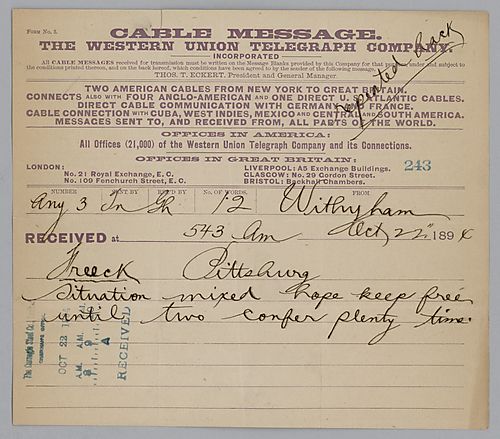 Form No. 3.
CABLE MESSAGE.
THE WESTERN UNION TELEGRAPH COMPANY.
INCORPORATED
All CABLE MESSAGES received for transmission must be written on the Message Blanks provided by this Company for that purpose, under and subject to
the conditions printed thereon, and on the back hereof, which conditions have been agreed to by the sender of the following message.
THOS. T. ECKERT, President and General Manager.
repeated back
TWO AMERICAN CABLES FROM NEW YORK TO GREAT BRITAIN.
CONNECTS ALSO WITH FOUR ANGLO-AMERICAN AND ONE DIRECT U.S. ATLANTIC CABLES.
DIRECT CABLE COMMUNICATION WITH GERMANY AND FRANCE.
CABLE CONNECTION WITH CUBA, WEST INDIES, MEXICO AND CENTRAL AND SOUTH AMERICA.
MESSAGES SENT TO, AND RECEIVED FROM, ALL PARTS OF THE WORLD.
OFFICES IN AMERICA:
All Offices (21,000) of the Western Union Telegraph Company and its Connections.
OFFICES IN GREAT BRITAIN:
LONDON:
No. 21 Royal Exchange, E.C.
No. 109 Fenchurch Street, E.C.
LIVERPOOL: A5 Exchange Buildings.
GLASCOW: No. 29 Gordon Street.
BRISTOL: Backhall Chambers.
243
NUMBER SENT BY REC'D BY No. OF WORDS. FROM
Any 3 12 Withyham
RECEIVED at 543 Am Oct 22" 1894
Freeck Pittsburg
Situation mixed hope keep free
until two confer plenty time
The Carnegie Steel Co.
OCT 22
A.M.
A.M.
8 9
RECEIVED